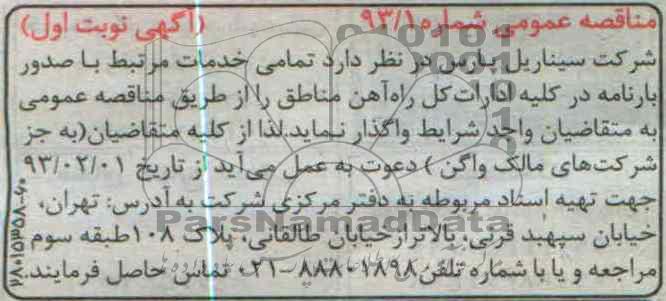 مناقصه عمومی شماره ۹۳/۱ (آگهی نوبت اول)
شرکت سیناریل پارس در نظر دارد تمامی خدمات مرتبط با صدور
بارنامه در کلیه ادارات کل راه‌آهن مناطق را از طریق مناقصه عمومی
به متقاضیان واجد شرایط واگذار نماید.لذا از کلیه متقاضیان(به جز
شرکت‌های مالک واگن ) دعوت به عمل می‌آید از تاریخ ۹۳/۰۲/۰۱
جهت تهیه اسناد مربوطه به دفتر مرکزی شرکت به آدرس: تهران،
خیابان سپهبد قرنی، بالاتراز خیابان طالقانی، پلاک ۱۰۸ طبقه سوم
مراجعه و یا با شماره تلفن ۸۸۸۰۱۸۹۸-۰۲۱ تماس حاصل فرمایند.
ParsNamadData